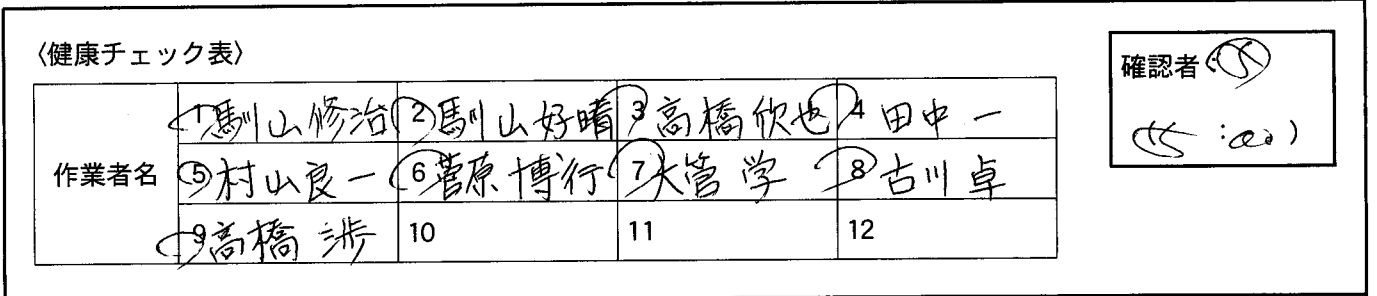 〈健康チェック表〉
確認者
作業者名
1 馴山修治 2 馴山好晴 3 高橋欣也 4 田中一
5 村山良一 6 菅原博行 7 大管学 8 古川卓
9 高橋渉 10 11 12